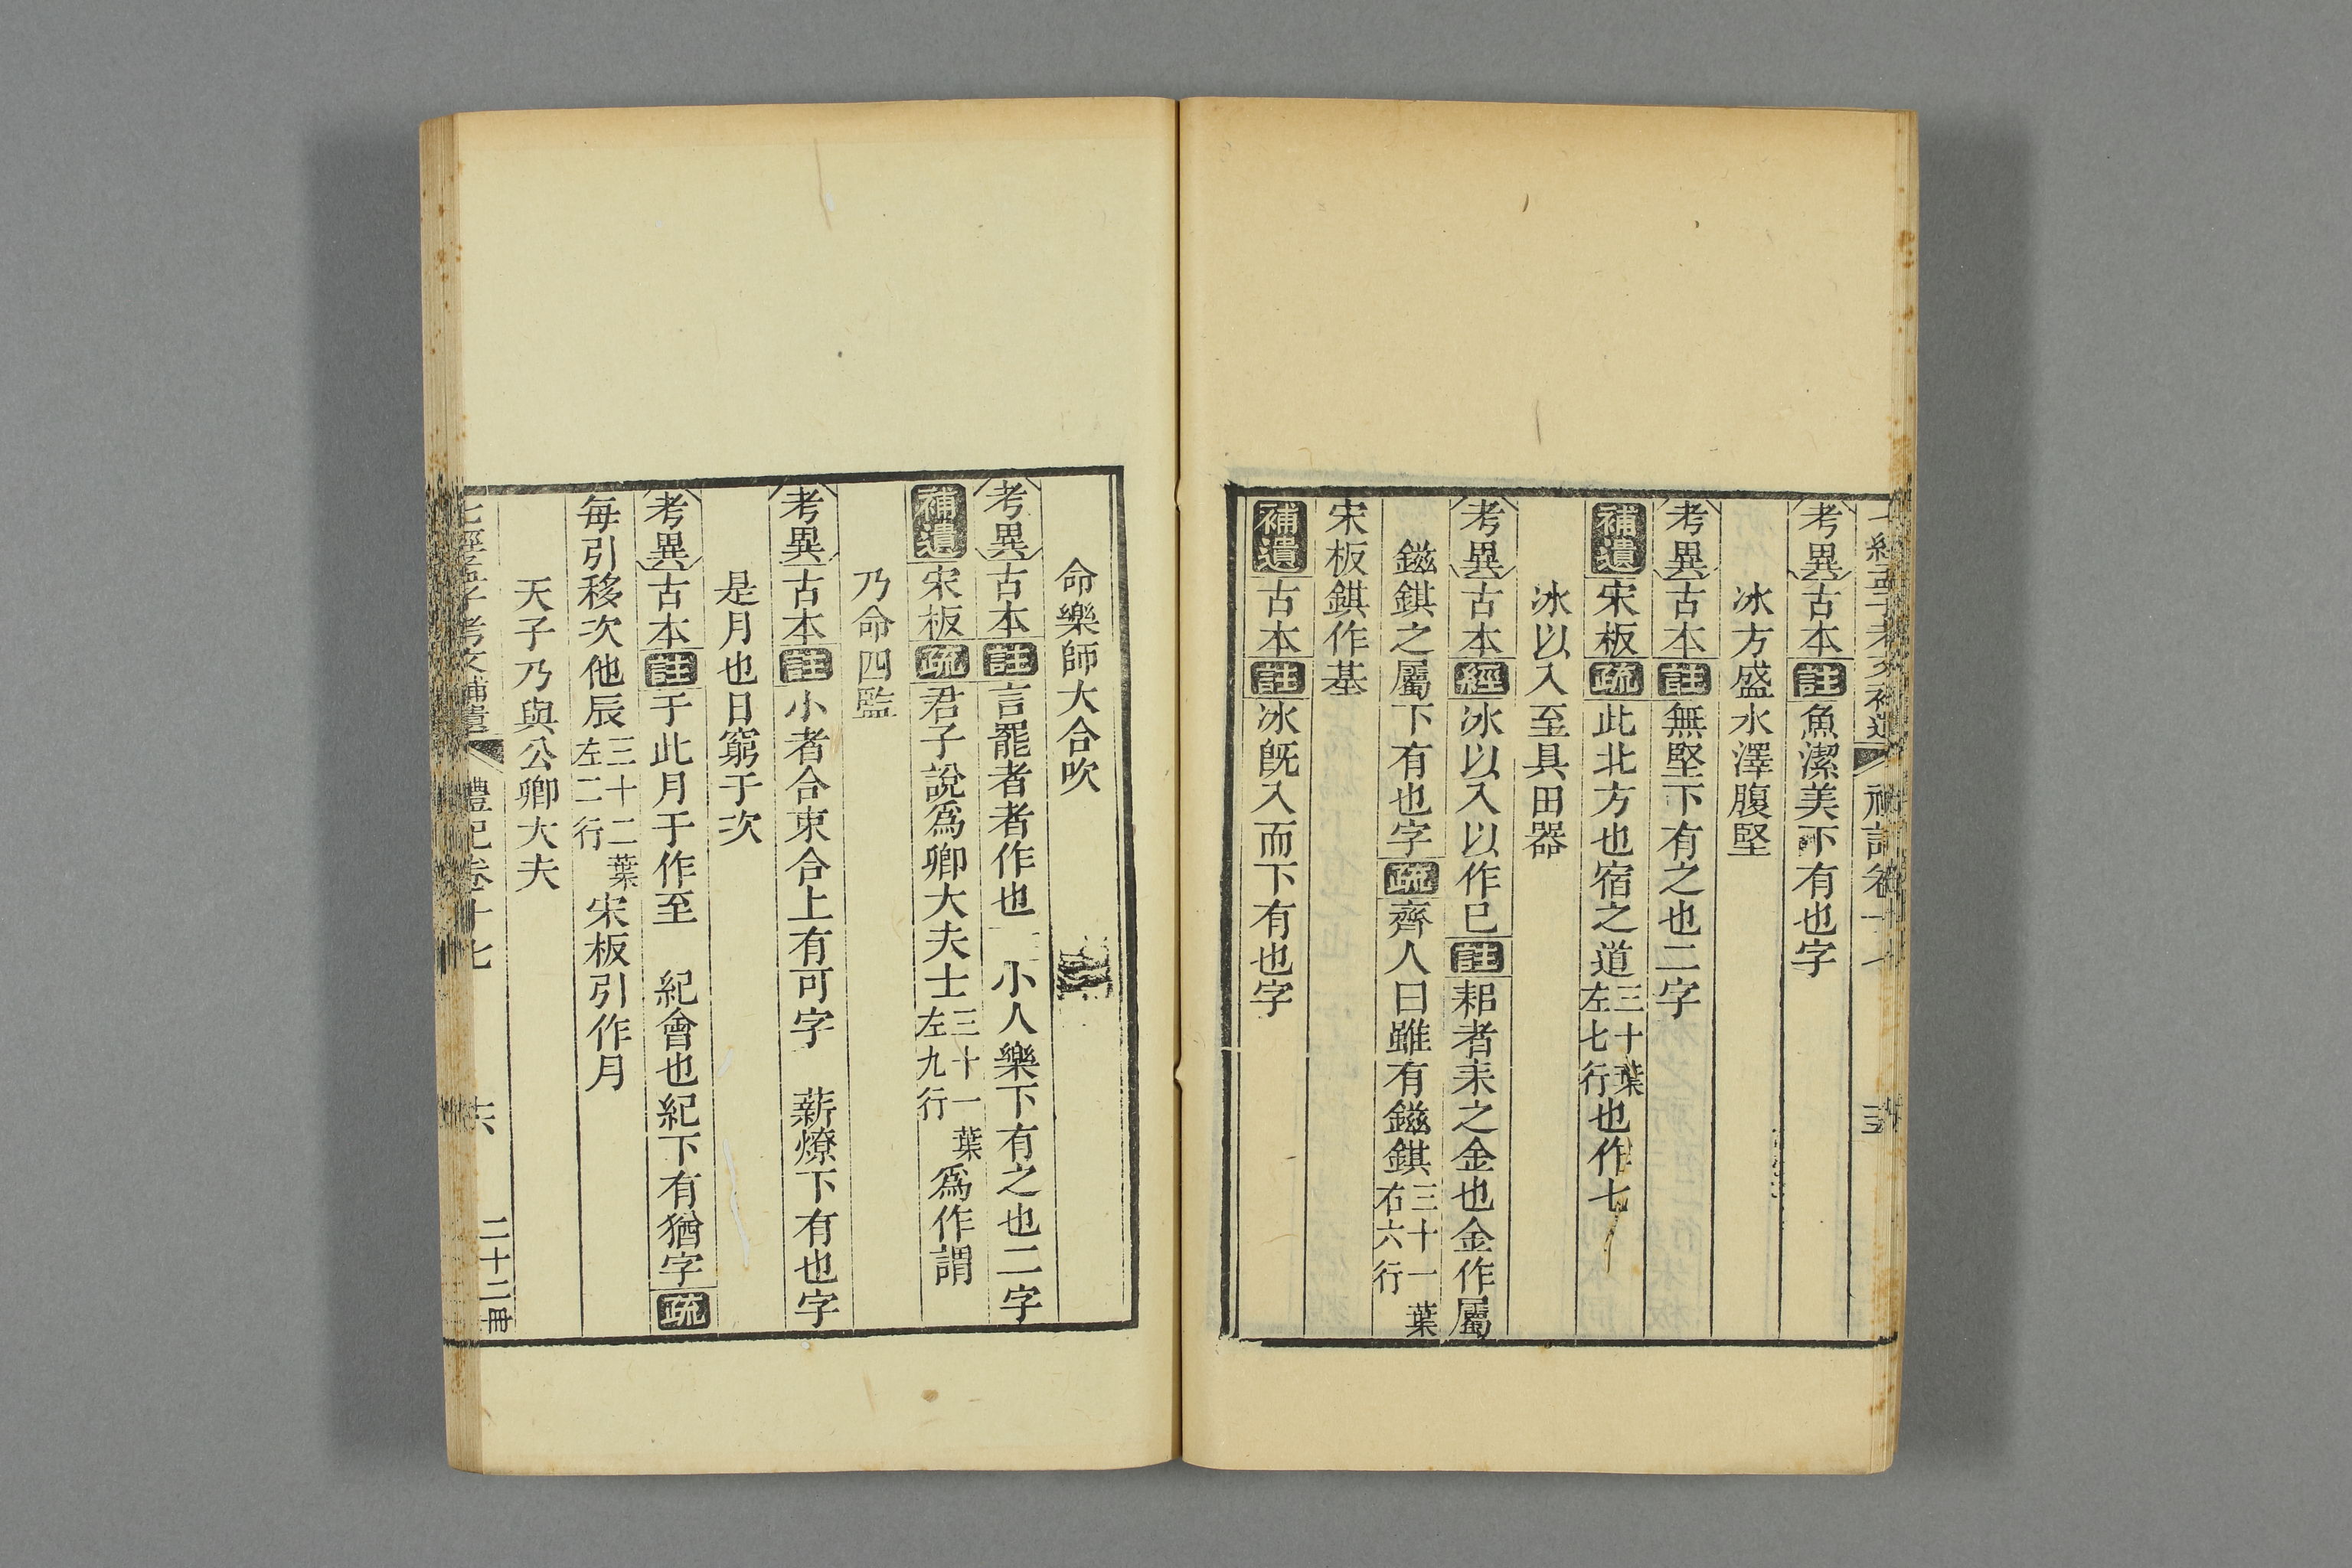 考異古本註魚潔美下有也字
冰方盛水澤腹堅
考異古本註無堅下有之也二字
補遺宋板疏此北方也宿之道三十葉左七行也作七
冰以入至具田器
考異古本經冰以入以作已註耜者耒之金也金作屬
鎡錤之屬下有也字疏齊人曰雖有鎡錤三十一葉右六行
宋板錤作基
補遺古本註冰旣入而下有也字
命樂師大合吹
考異古本註言罷者者作也 小人樂下有之也二字
補遺宋板疏君子說爲卿大夫士三十一葉左九行爲作謂
乃命四監
考異古本註小者合束合上有可字 薪燎下有也字
是月也日窮于次
考異古本註于此月于作至 紀會也紀下有猶字疏
每引移次他辰三十二葉左二行宋板引作月
天子乃與公卿大夫
七經孟子考文補遺 禮記卷十七 六 二十二冊